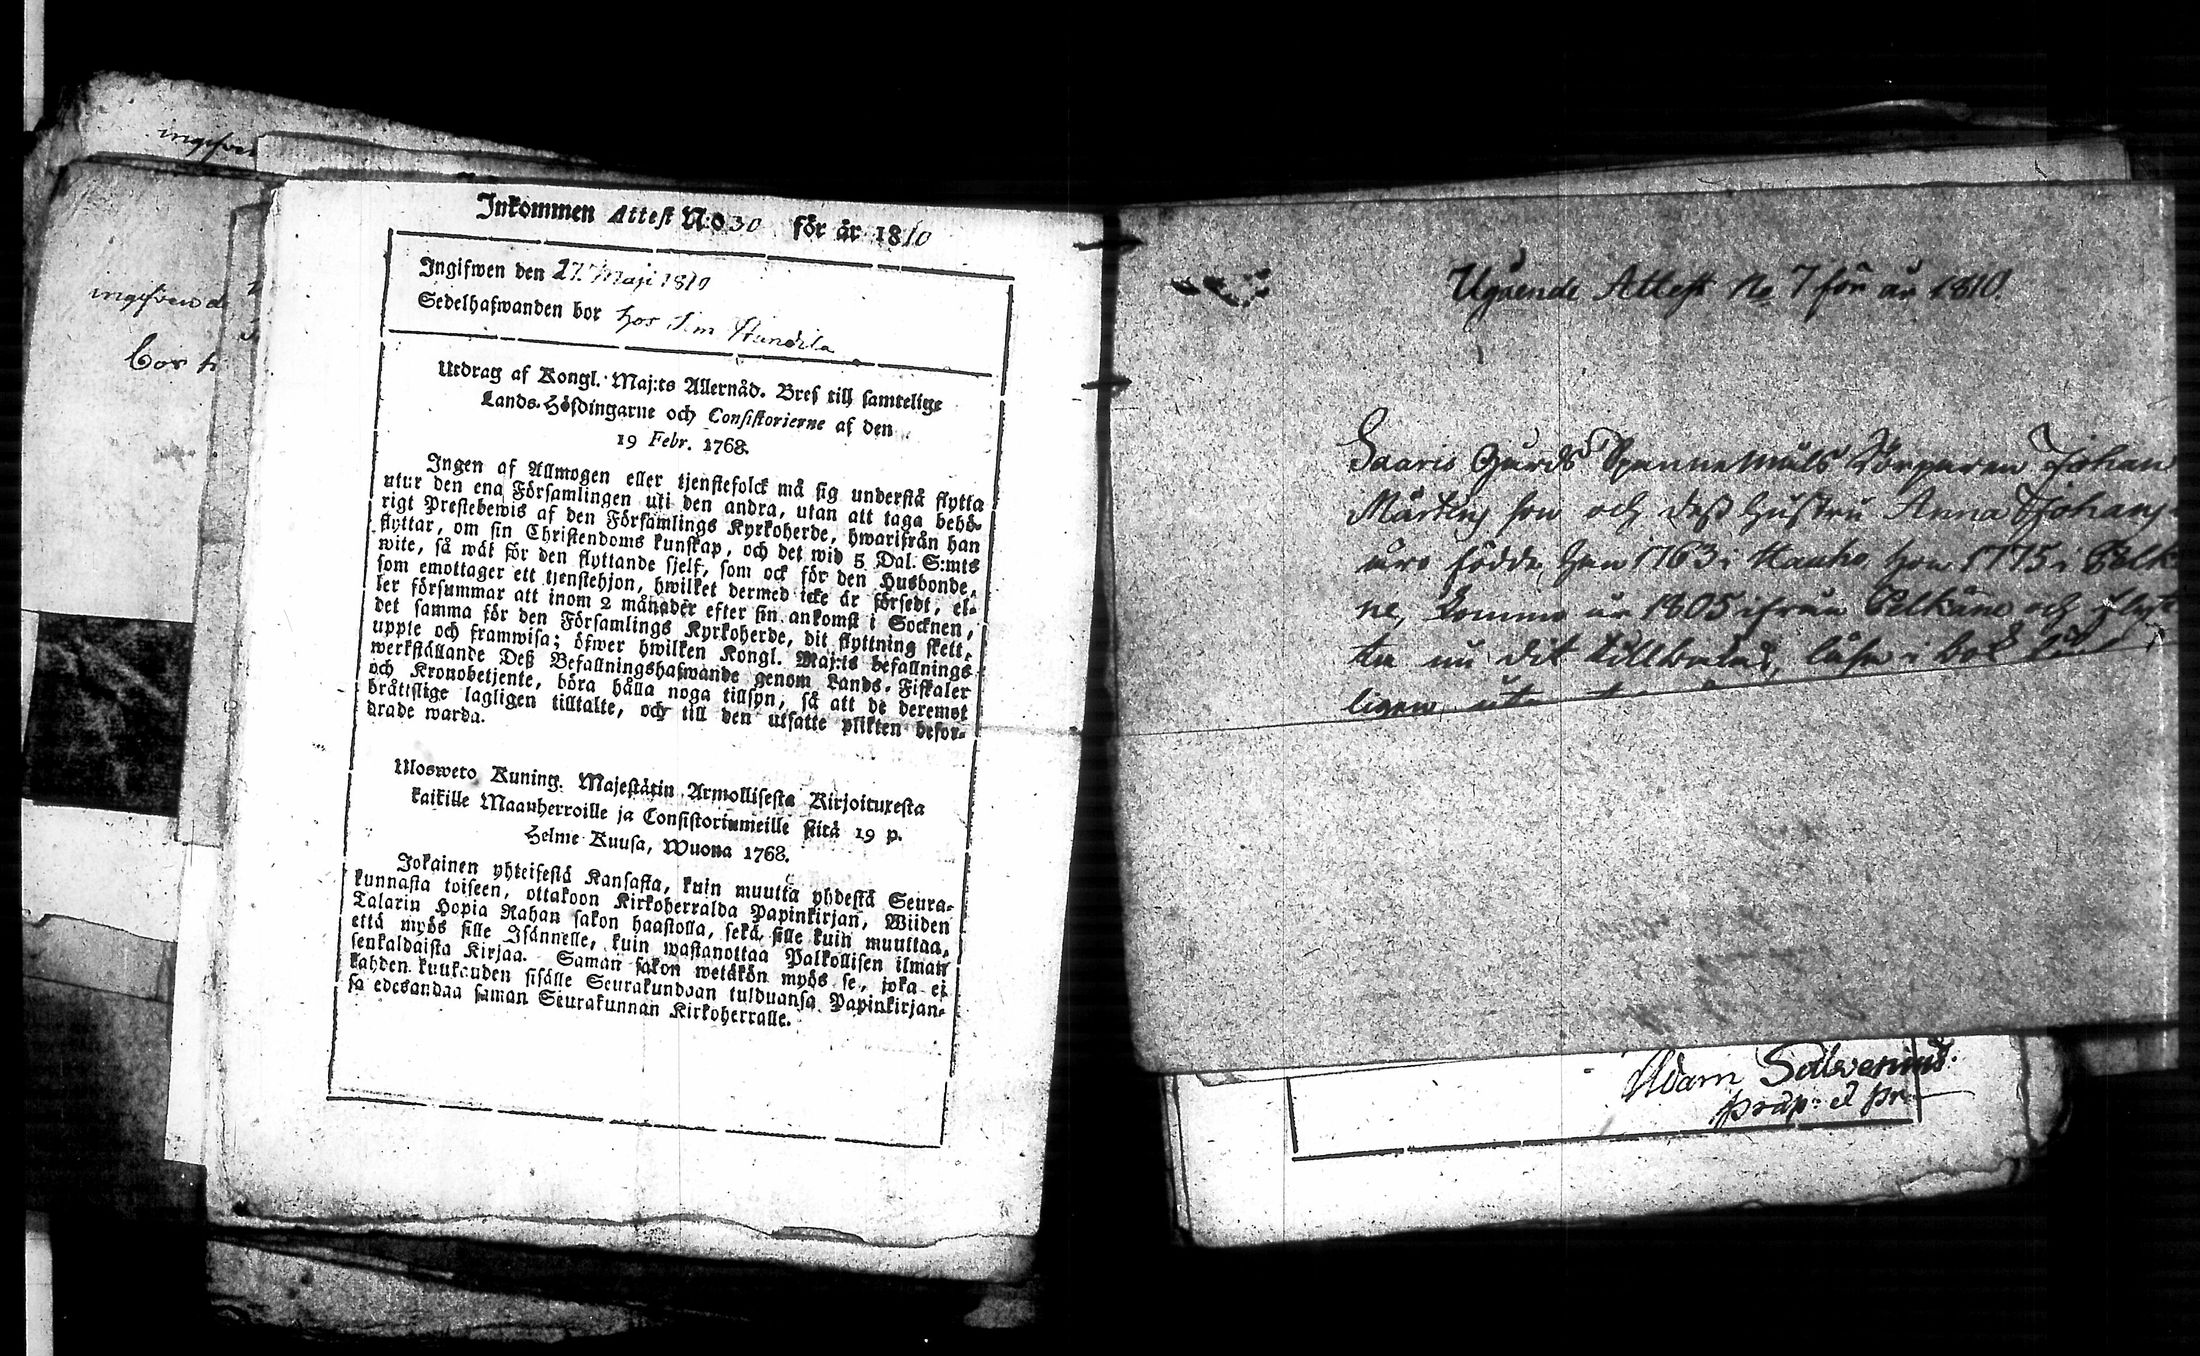 ingifven
ingifven d
bor h
Inkommen Attest N:o 30 för år 1810
Ingifwen den 27. Maji 1810
Sedelhafwanden bor hos
Utdrag af Kongl. Maj:ts Allernåd. Bref till samtelige
Lands-Höfdingarne och Consistorierne af den
19 Febr. 1768.
Ingen af Allmogen eller tjenstefolck må sig understå flytta
utur den ena Församlingen uti den andra, utan att taga behö-
rigt Prestebewis af den Församlings Kyrkoherde, hwarifrån han
flyttar, om sin Christendoms kunskap, och det wid 5 Dal. S:mts
wite, så wäl för den flyttande sjelf, som ock för den Husbonde,
som emottager ett tjenstehjon, hwilket dermed icke är försedt, el-
ler försummar att inom 2 månader efter sin ankomst i Socknen,
det samma för den Församlings Kyrkoherde, dit flyttning skett,
uppte och framwisa; öfwer hwilken Kongl. Maj:ts befallnings
werkställande Deß Befallningshafwande genom Lands-Fiskaler
och Kronobetjente, böra hålla noga tillsyn, så att de deremot
bråttslige lagligen tilltalte, och till den utsatte plikten befor-
drade warda.
Ulosweto Kuning. Majestätin Armollisesta Kirjoituxesta
kaikille Maanherroille ja Consistoriumeille siitä 19 p.
Helme Kuusa, Wuona 1768.
Jokainen yhteisestä Kansasta, kuin muutta yhdestä Seura-
kunnasta toiseen, ottakoon Kirkoherralda Papinkirjan, Wiiden
Talarin Hopia Rahan sakon haastolla, sekä sille kuin muuttaa,
että myös sille Isännelle, kuin wastanottaa Palkollisen ilman
senkaldaista Kirjaa. Saman sakon wetäkön myös se, joka ei
kahden kuukauden sisälle Seurakundaan tulduansa Papinkirjan-
sa edesandaa saman Seurakunnan Kirkoherralle.
Utgående Attest No 7 för år 1810.
Saaris Gårds Johan
Mårtens son och deß hustru Anna Johans-
födde han 1763 i Hauho, hon 1775 i Pelk-
ne, komne år 1805 ifrån Pelkäne och
nu dit tillbaka, läsa i bok
ligen
Adam
præp: et